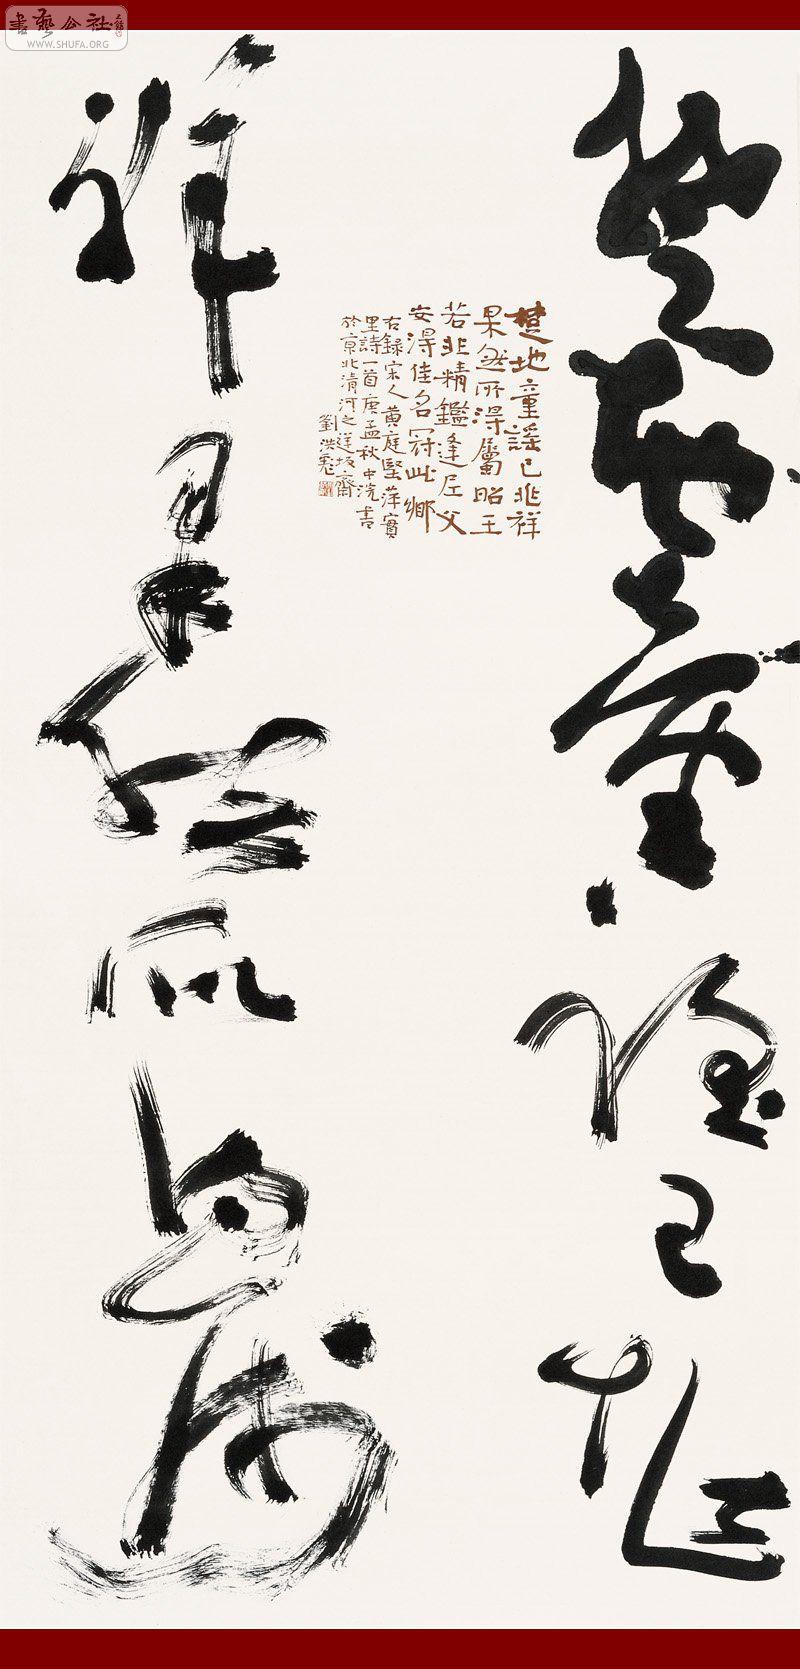 書藝公社
WWW.SHUFA.ORG
楚地童謠已兆
祥果然所得屬
楚地童謠已兆祥
果然所得屬昭王
若非精鑑逢尼父
安得佳名冠此鄉
右錄宋人黃庭堅萍實
里詩一首庚孟秋中浣書
於京北清河之逆坂齋
劉洪彪